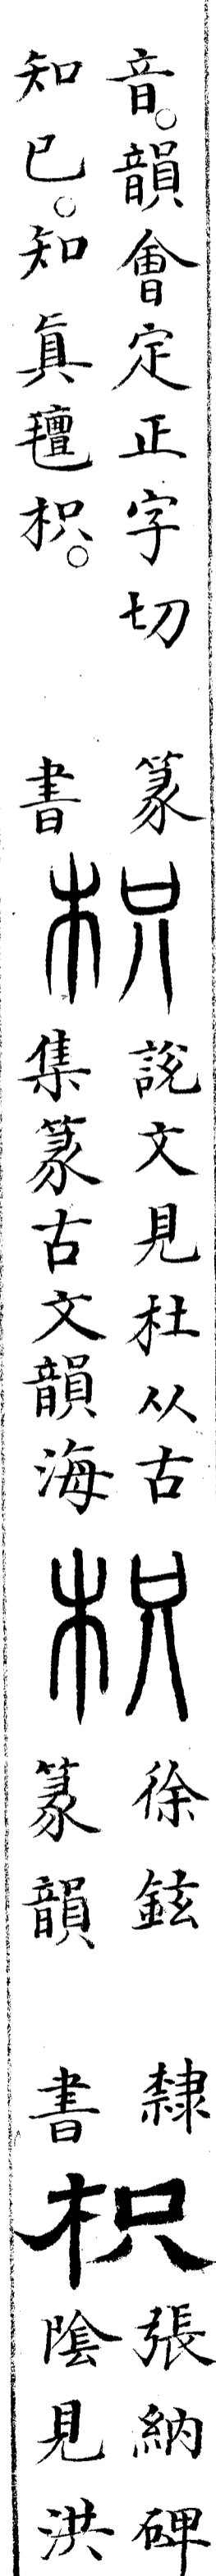 音。韻會定正字切
知已。知真氊枳。
篆
書
枳
說文見杜从古
集篆古文韻海
枳
徐鉉
篆韻
隸
書
枳
張納碑
陰見洪